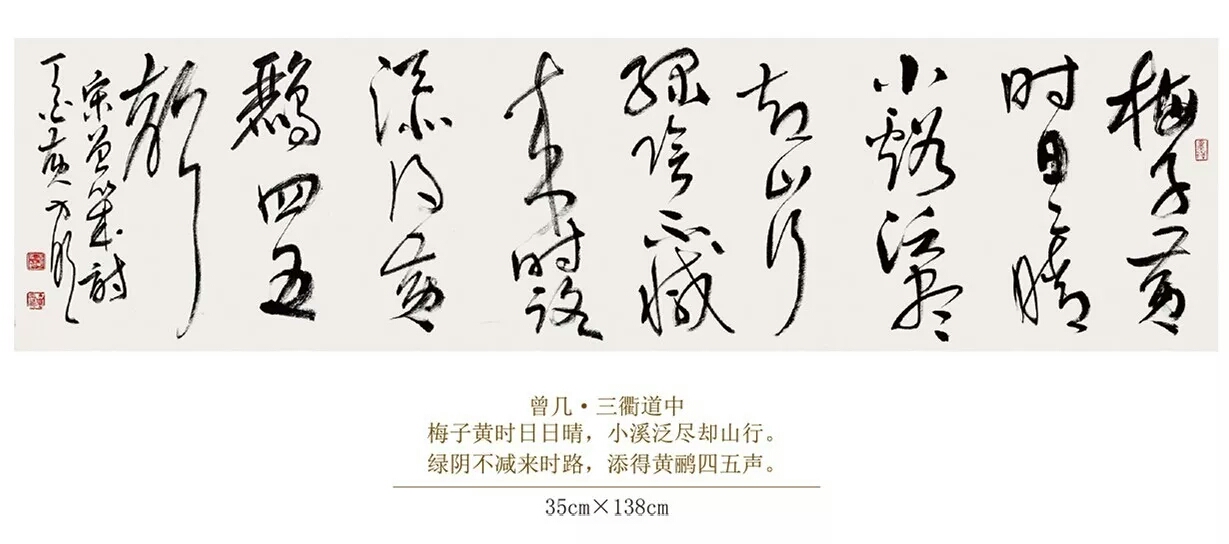 梅子黄
时日日晴
小谿泛尽
却山行
绿阴不减
来时路
添得黄
鹂四五
声
宋曾几诗
丁酉
曾几·三衢道中
梅子黄时日日晴，小溪泛尽却山行。
绿阴不减来时路，添得黄鹂四五声。
35cm×138cm